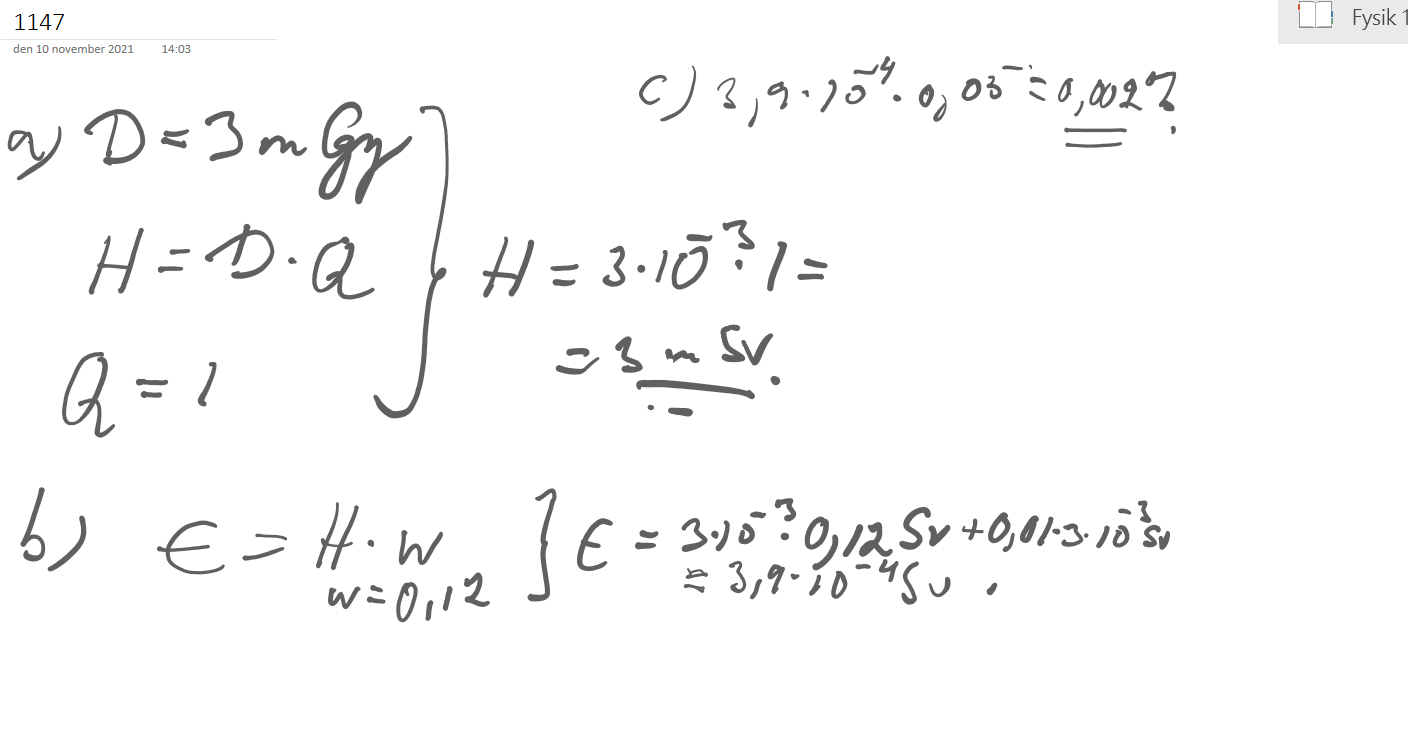 1147
den 10 november 2021 14:03
Fysik 1
c) 3,9·10⁻⁴·0,05 = 0,002%.
a) D = 3 mGy
H = D·Q
Q = 1
H = 3·10⁻³·1 =
= 3 mSv.
b) E = H·w
w = 0,12
E = 3·10⁻³·0,12 Sv + 0,01·3·10⁻³ Sv
= 3,9·10⁻⁴ Sv.